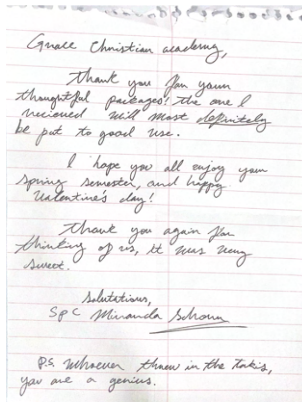 Grace Christian academy,
Thank you for your
thoughtful packages! the one I
recieved will most definitely
be put to good use.
I hope you all enjoy your
spring semester, and happy
Valentine's day!
Thank you again for
thinking of us, it was very
sweet.
Salutations,
Spc Miranda
P.S. Whoever threw in the takis,
you are a genius.